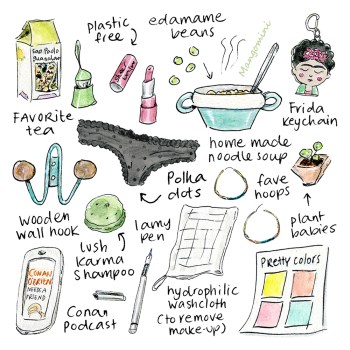 plastic
free
edamame
beans
Mangomini
FAVORITE
tea
Frida
keychain
home made
noodle soup
Polka
dots
fave
hoops
wooden
wall hook
lush
Karma
shampoo
lamy
pen
plant
babies
CONAN
O'BRIEN
NEEDS A
FRIEND
Conan
Podcast
hydrophilic
washcloth
(to remove
make-up)
Pretty colors